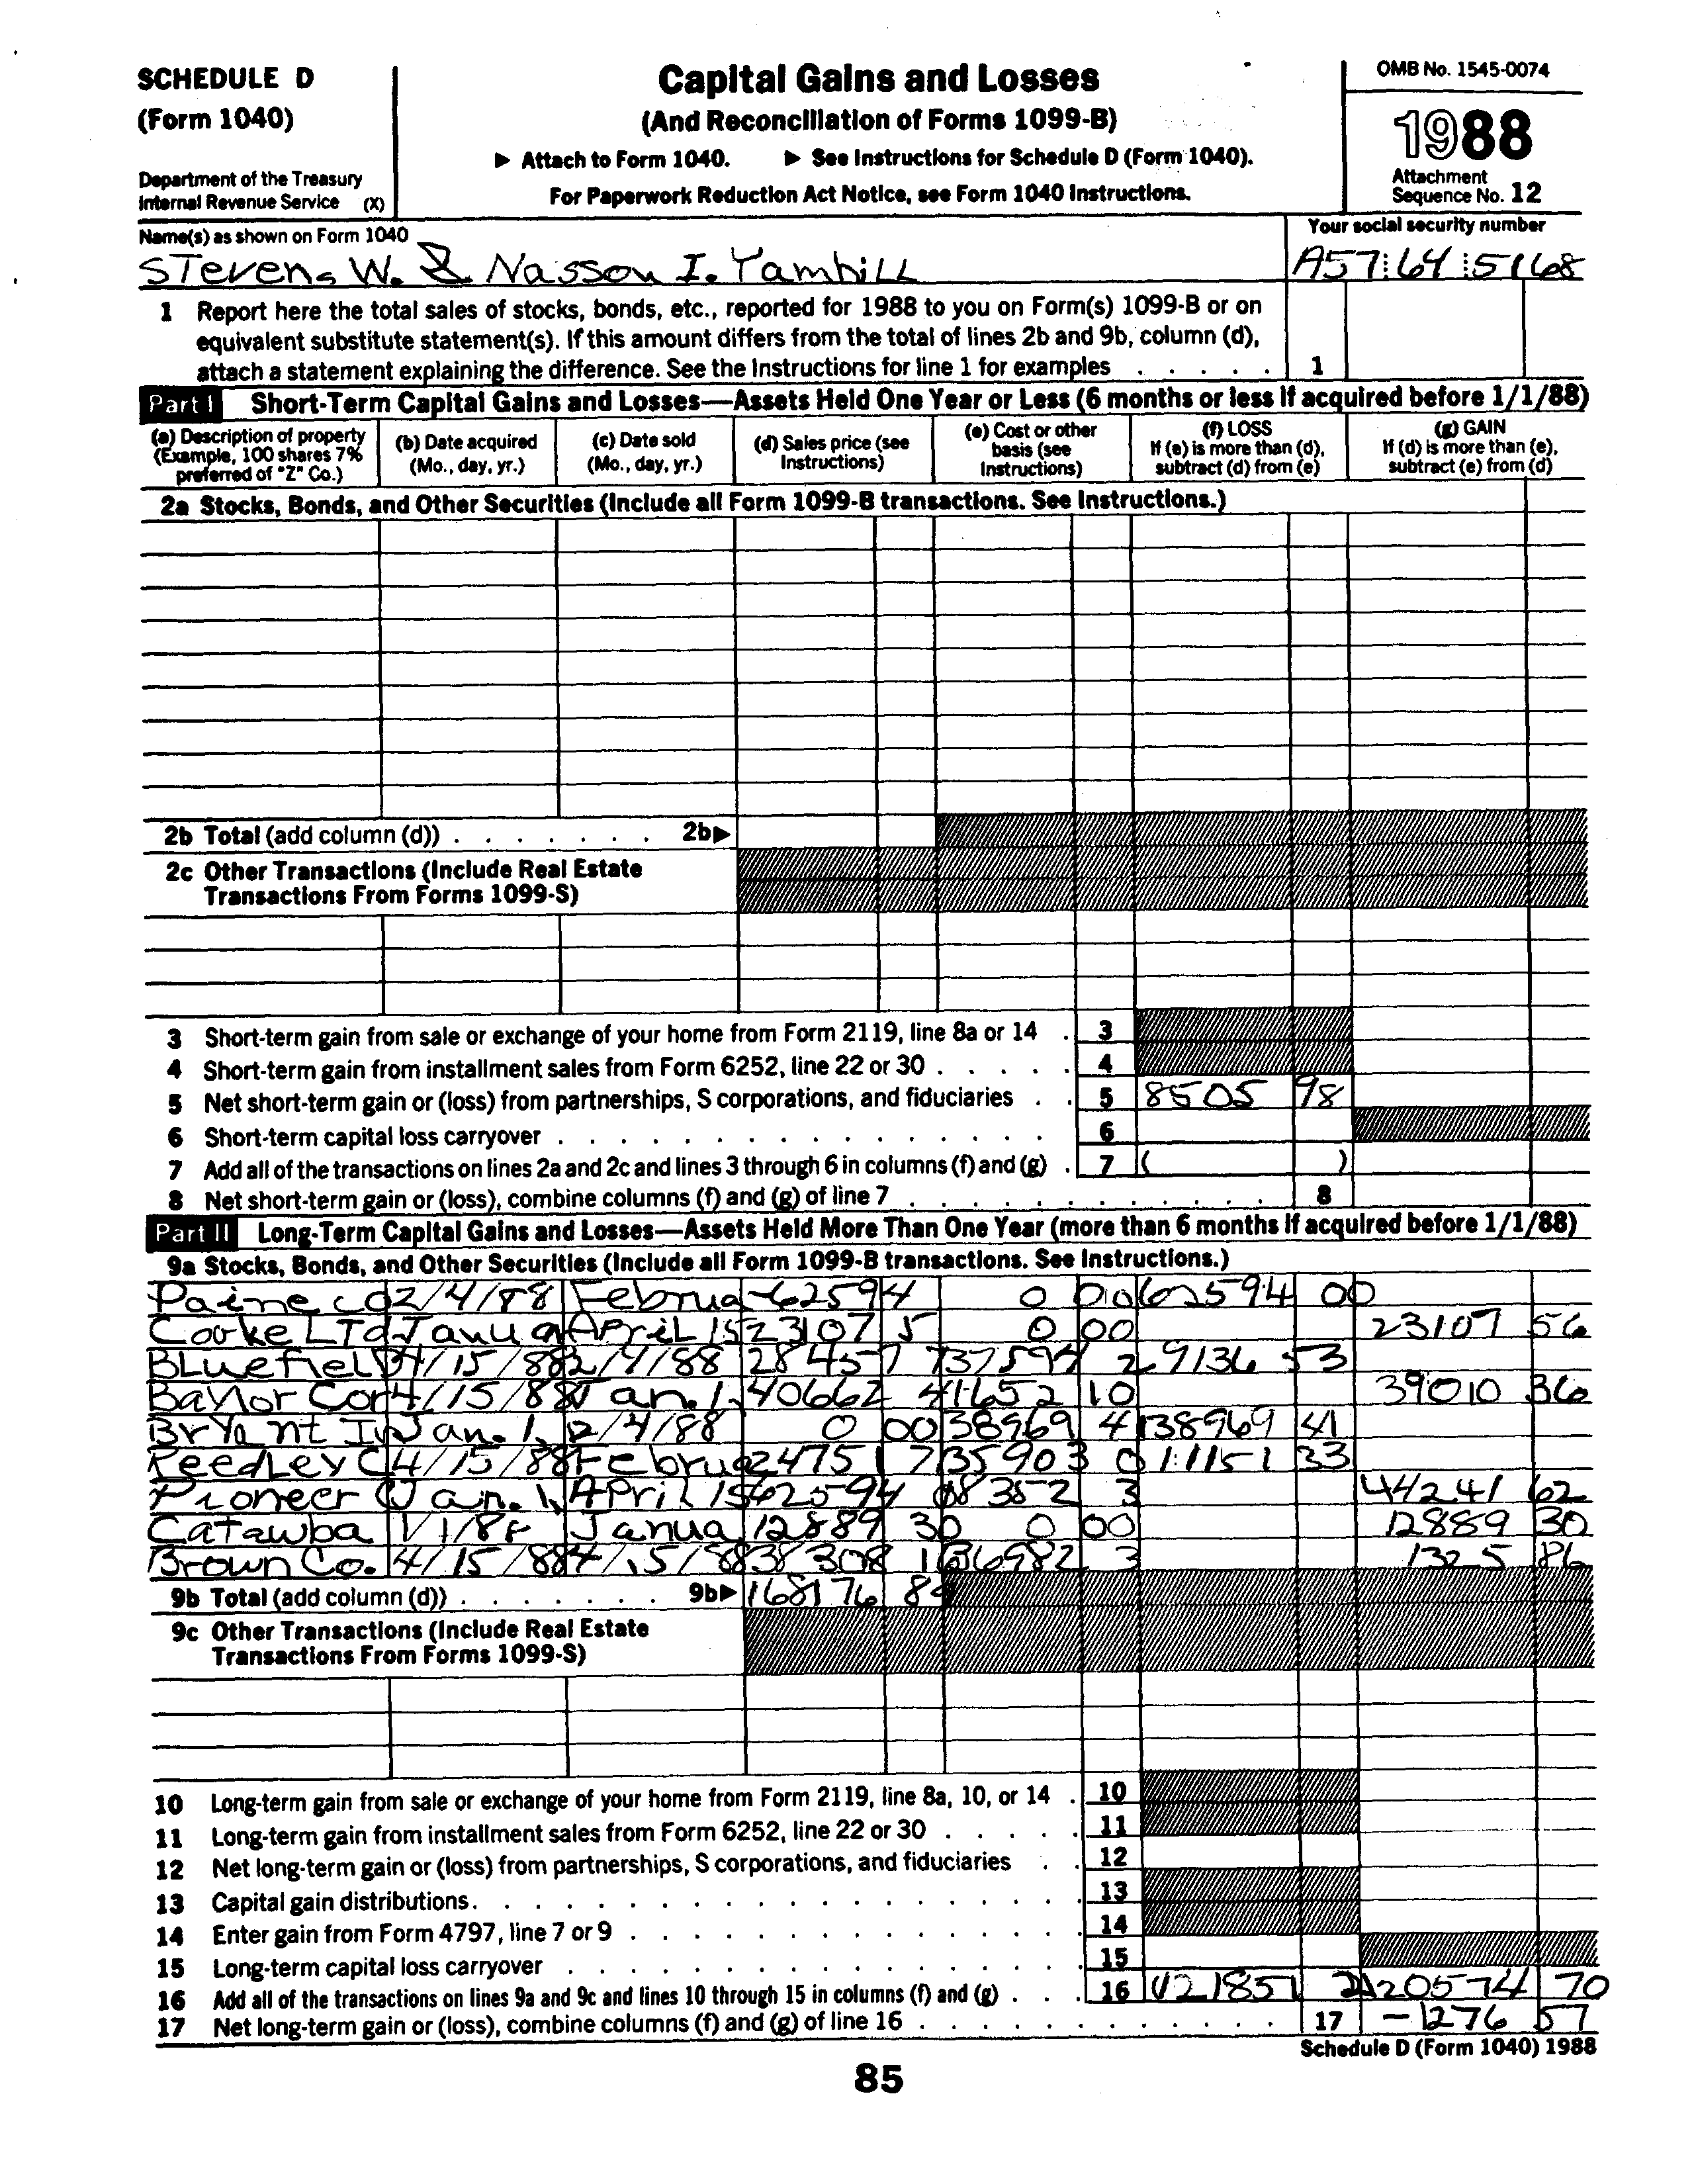 SCHEDULE D
(Form 1040)
Department of the Treasury
Internal Revenue Service (X)
Capital Gains and Losses
(And Reconciliation of Forms 1099-B)
▶ Attach to Form 1040. ▶ See Instructions for Schedule D (Form 1040).
For Paperwork Reduction Act Notice, see Form 1040 Instructions.
OMB No. 1545-0074
1988
Attachment
Sequence No. 12
Name(s) as shown on Form 1040
Steven W. & Nasson I. Yamhill
Your social security number
A57 64 5168
1 Report here the total sales of stocks, bonds, etc., reported for 1988 to you on Form(s) 1099-B or on
equivalent substitute statement(s). If this amount differs from the total of lines 2b and 9b, column (d),
attach a statement explaining the difference. See the Instructions for line 1 for examples . . . . . 1
Part I Short-Term Capital Gains and Losses—Assets Held One Year or Less (6 months or less if acquired before 1/1/88)
(a) Description of property (Example, 100 shares 7% preferred of "Z" Co.)
(b) Date acquired (Mo., day, yr.)
(c) Date sold (Mo., day, yr.)
(d) Sales price (see Instructions)
(e) Cost or other basis (see Instructions)
(f) LOSS If (e) is more than (d), subtract (d) from (e)
(g) GAIN If (d) is more than (e), subtract (e) from (d)
2a Stocks, Bonds, and Other Securities (Include all Form 1099-B transactions. See Instructions.)
2b Total (add column (d)) . . . . . . . 2b▶
2c Other Transactions (Include Real Estate
Transactions From Forms 1099-S)
3 Short-term gain from sale or exchange of your home from Form 2119, line 8a or 14 . 3
4 Short-term gain from installment sales from Form 6252, line 22 or 30 . . . . . 4
5 Net short-term gain or (loss) from partnerships, S corporations, and fiduciaries . . 5 8505 98
6 Short-term capital loss carryover . . . . . . . . . . . . . . . . 6
7 Add all of the transactions on lines 2a and 2c and lines 3 through 6 in columns (f) and (g) . 7 ( )
8 Net short-term gain or (loss), combine columns (f) and (g) of line 7 . . . . . . . . . . . . 8
Part II Long-Term Capital Gains and Losses—Assets Held More Than One Year (more than 6 months if acquired before 1/1/88)
9a Stocks, Bonds, and Other Securities (Include all Form 1099-B transactions. See Instructions.)
Paine Co 2/4/88 Februa -62594 0 00 62594 00
Cooke LTd Janua April 15 23107 5 0 00 23107 56
Bluefield 4/15/88 2/4/88 28457 7 37594 2 9136 53
Baylor Cor 4/15/88 Jan. 1, 40662 4 1652 10 39010 36
Bryant In Jan. 1, 2/4/88 0 00 38969 4 38969 41
Reedley C 4/15/88 Februa 24751 7 35903 0 11151 33
Pioneer C Jan. 1, April 15 62594 0 18352 3 44241 62
Catawba 1/1/88 Janua 12889 30 0 00 12889 30
Brown Co. 4/15/88 4/15/88 38308 1 36982 3 1325 86
9b Total (add column (d)) . . . . . . . 9b▶ 168176 84
9c Other Transactions (Include Real Estate
Transactions From Forms 1099-S)
10 Long-term gain from sale or exchange of your home from Form 2119, line 8a, 10, or 14 . 10
11 Long-term gain from installment sales from Form 6252, line 22 or 30 . . . . . 11
12 Net long-term gain or (loss) from partnerships, S corporations, and fiduciaries . . 12
13 Capital gain distributions . . . . . . . . . . . . . . . . . . 13
14 Enter gain from Form 4797, line 7 or 9 . . . . . . . . . . . . . 14
15 Long-term capital loss carryover . . . . . . . . . . . . . . . . 15
16 Add all of the transactions on lines 9a and 9c and lines 10 through 15 in columns (f) and (g) . . . 16 (121851 2) 120574 70
17 Net long-term gain or (loss), combine columns (f) and (g) of line 16 . . . . . . . . . . . . 17 -1276 57
Schedule D (Form 1040) 1988
85